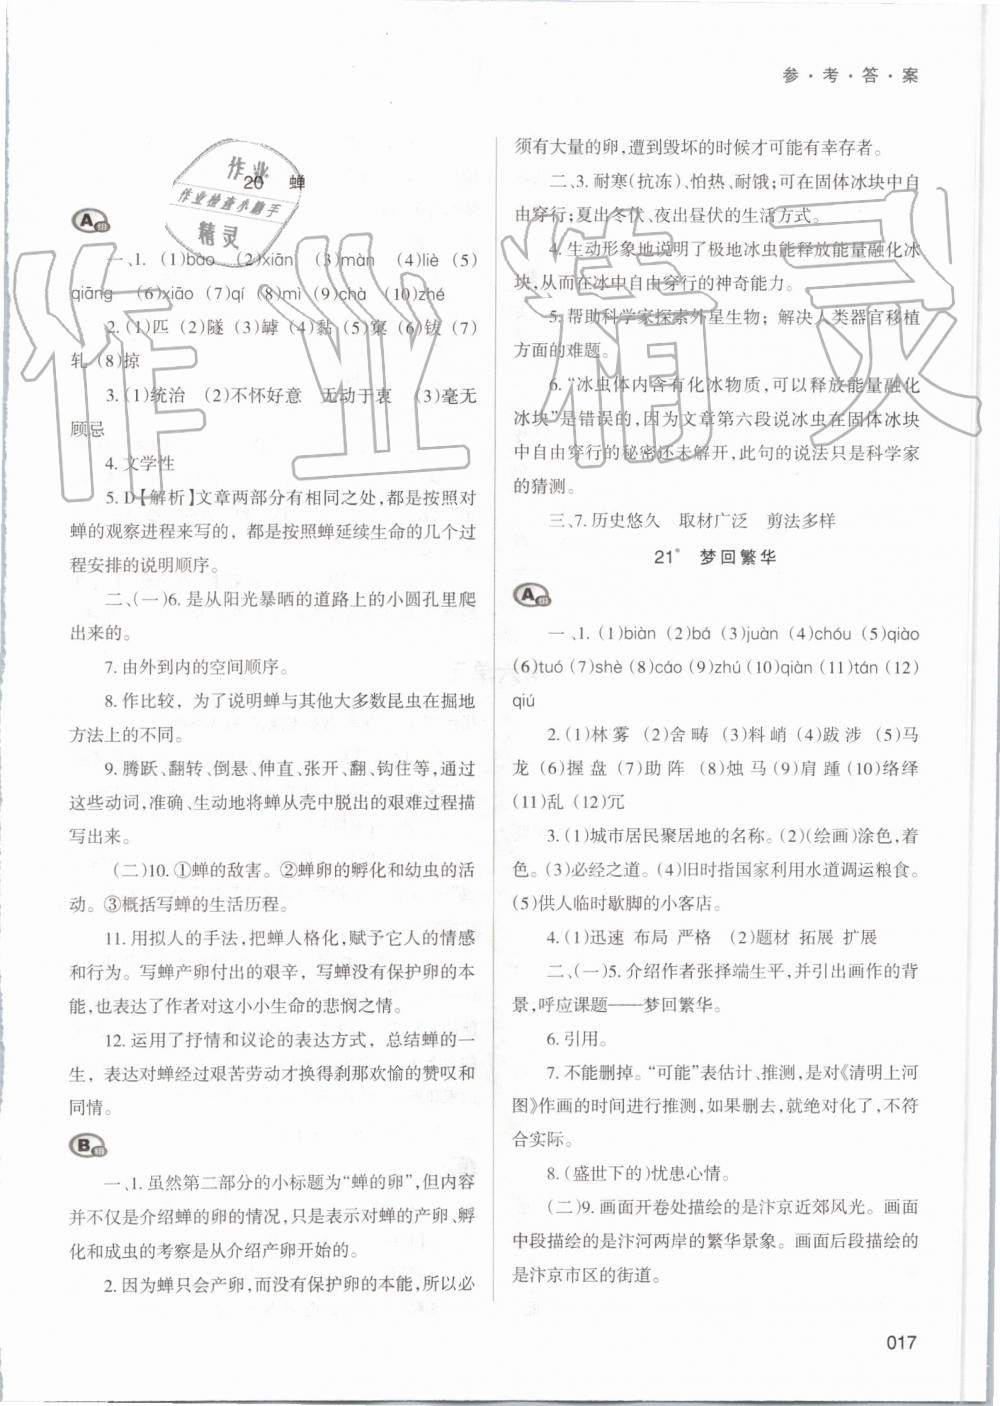 参·考·答·案
作业
作业检查小助手
精灵
20 蝉
A组
一、1. (1)bāo (2)xiān (3)màn (4)liè (5)
qiāng (6)xiāo (7)qí (8)mì (9)chà (10)zhé
2. (1)匹 (2)隧 (3)罅 (4)黏 (5)窠 (6)钹 (7)
轧 (8)掠
3. (1)统治 (2)不怀好意 无动于衷 (3)毫无
顾忌
4. 文学性
5. D【解析】文章两部分有相同之处，都是按照对
蝉的观察进程来写的，都是按照蝉延续生命的几个过
程安排的说明顺序。
二、(一)6. 是从阳光暴晒的道路上的小圆孔里爬
出来的。
7. 由外到内的空间顺序。
8. 作比较，为了说明蝉与其他大多数昆虫在掘地
方法上的不同。
9. 腾跃、翻转、倒悬、伸直、张开、翻、钩住等，通过
这些动词，准确、生动地将蝉从壳中脱出的艰难过程描
写出来。
(二)10. ①蝉的敌害。②蝉卵的孵化和幼虫的活
动。③概括写蝉的生活历程。
11. 用拟人的手法，把蝉人格化，赋予它人的情感
和行为。写蝉产卵付出的艰辛，写蝉没有保护卵的本
能，也表达了作者对这小小生命的悲悯之情。
12. 运用了抒情和议论的表达方式，总结蝉的一
生，表达对蝉经过艰苦劳动才换得刹那欢愉的赞叹和
同情。
B组
一、1. 虽然第二部分的小标题为“蝉的卵”，但内容
并不仅是介绍蝉的卵的情况，只是表示对蝉的产卵、孵
化和成虫的考察是从介绍产卵开始的。
2. 因为蝉只会产卵，而没有保护卵的本能，所以必
须有大量的卵，遭到毁坏的时候才可能有幸存者。
二、3. 耐寒(抗冻)、怕热、耐饿；可在固体冰块中自
由穿行；夏出冬伏、夜出昼伏的生活方式。
4. 生动形象地说明了极地冰虫能释放能量融化冰
块，从而在冰中自由穿行的神奇能力。
5. 帮助科学家探索外星生物；解决人类器官移植
方面的难题。
6. “冰虫体内含有化冰物质，可以释放能量融化
冰块”是错误的，因为文章第六段说冰虫在固体冰块
中自由穿行的秘密还未解开，此句的说法只是科学家
的猜测。
三、7. 历史悠久 取材广泛 剪法多样
21* 梦回繁华
A组
一、1. (1)biàn (2)bá (3)juàn (4)chóu (5)qiào
(6)tuó (7)shè (8)cáo (9)zhú (10)qiàn (11)tán (12)
qiú
2. (1)林 雾 (2)舍 畴 (3)料 峭 (4)跋 涉 (5)马
龙 (6)握 盘 (7)助 阵 (8)烛 马 (9)肩 踵 (10)络绎
(11)乱 (12)冗
3. (1)城市居民聚居地的名称。(2)(绘画)涂色，着
色。(3)必经之道。(4)旧时指国家利用水道调运粮食。
(5)供人临时歇脚的小客店。
4. (1)迅速 布局 严格 (2)题材 拓展 扩展
二、(一)5. 介绍作者张择端生平，并引出画作的背
景，呼应课题——梦回繁华。
6. 引用。
7. 不能删掉。“可能”表估计、推测，是对《清明上河
图》作画的时间进行推测，如果删去，就绝对化了，不符
合实际。
8. (盛世下的)忧患心情。
(二)9. 画面开卷处描绘的是汴京近郊风光。画面
中段描绘的是汴河两岸的繁华景象。画面后段描绘的
是汴京市区的街道。
017
作业精灵